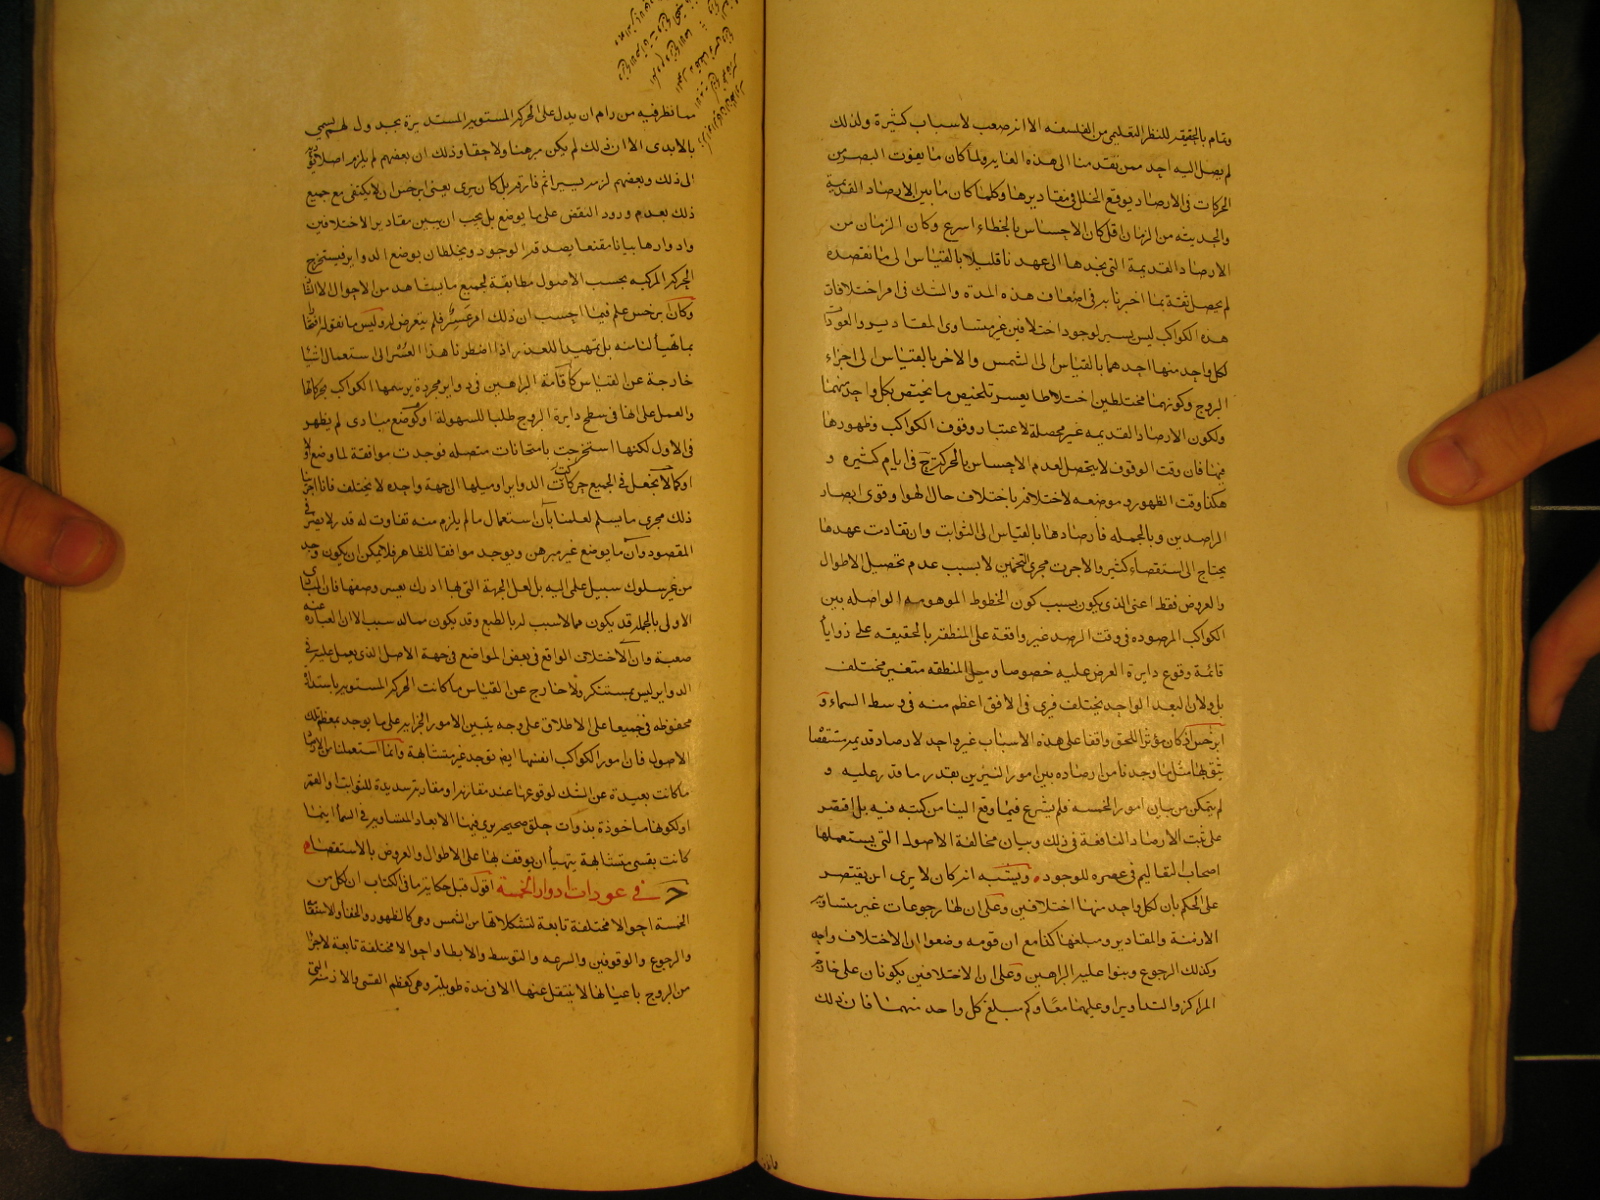 وتمام بالحقيقه للنظر التعليمي من الفلسفه الا انه صعب لاسباب كثيرة ولذلك
لم يصل اليه احد ممن تقدمنا الى هذه الغايه ولما كان ما يفوت البصر من
الحركات فى الارصاد يوقع الخلل فى مقاديرها وكلما كان ما بين الارصاد القديمة
والحديثه من الزمان اقل كان الاحساس بالخطاء اسرع وكان الزمان من
الارصاد القديمة التى نجدها الى عهدنا قليلا بالقياس الى ما نقصده
لم يحصل ثقة بما اخبرنا به فى اضعاف هذه المدة والشك فى امر اختلافات
هذه الكواكب ليس بيسير لوجود اختلافين غير متساوى المقادير والعودات
لكل واحد منها احدهما بالقياس الى الشمس والاخر بالقياس الى اجزاء
البروج وكونهما مختلطين اختلاطا يعسر تلخيص ما يختص بكل واحد منهما
ولكون الارصاد القديمه غير محصلة لاعتبار وقوف الكواكب وظهورها
فيها فان وقت الوقوف لا يتحصل لعدم الاحساس بالحركة فى ايام كثيره و
هكذا وقت الظهور و موضعه لاختلافه باختلاف حال الهوا وقوى ابصار
الراصدين وبالجمله فارصادها بالقياس الى الثوابت وان تقادمت عهدها
يحتاج الى استقصاء كثير والا جرت مجرى التخمين لا بسبب عدم تحصيل الاطوال
والعروض فقط اعنى الذى يكون بسبب كون الخطوط الموهومه الواصله بين
الكواكب المرصوده فى وقت الرصد غير واقعة على المنطقه بالحقيقه على زوايا
قائمة وقوع دايرة العرض عليه خصوصا وميل المنطقه متغير مختلف
بل ولان البعد الواحد يختلف فيرى فى الافق اعظم منه فى وسط السماء و
ابرخس اذ كان مؤثرا للحق واقفا على هذه الاسباب غير واجد لارصاد قديمة مستقصا
يثق بها مثل ما وجدنا من ارصاده بين امور النيرين بقدر ما قدر عليه و
لم يتمكن من بيان امور الخمسه فلم يشرع فيما وقع الينا من كتبه فيه بل اقتصر
على ثبت الارصاد النافعة فى ذلك وبيان مخالفة الاصول التى يستعملها
اصحاب التعاليم فى عصره للوجود ويشبه انه كان لا يرى ان يقتصر
على الحكم بان لكل واحد منها اختلافين وعلى ان لها رجوعات غير متساويه
الازمنة والمقادير ومبلغها كذا مع ان قومه وضعوا ان الاختلاف واحد
وكذلك الرجوع وبنوا عليه البراهين وعلى ان الاختلافين يكونان على خارجه
المراكز والتداوير او عليهما معا وكم مبلغ كل واحد منهما فان ذلك
مما نظر فيه من رام ان يدل على الحركة المستويه المستديرة بجدول لهم يسمى
بالابدى الا ان ذلك لم يكن مبرهنا ولا حقا وذلك ان بعضهم لم يلزم اصلا
الى ذلك وبعضهم لزمه يسيرا ثم فارقه بل كان يرى يعنى ابرخس انه لا يكتفى مع جميع
ذلك بعدم ورود النقض على ما يوضع بل يجب ان يبين مقادير الاختلافين
وادوارها بيانا مقنعا يصدقه الوجود ويخلطان بوضع الدواير فيستخرج
الحركة المركبه بحسب الاصول مطابقة لجميع ما يشاهد من الاحوال
وكان برخس علم فيما احسب ان ذلك امر عسر فلم يتعرض له وليس ما نقوله
بل تمهيدا للعذر اذا اضطرنا هذا العسر الى استعمال اشيا
خارجة عن القياس كاقامة البراهين فى دواير مجردة يرسمها الكواكب بحركاتها
والعمل على انها فى سطح دايرة البروج طلبا للسهولة او كوضع مبادى لم يظهر
فى الاول لكنها استخرجت بامتحانات متصله فوجدت موافقة لما وضع
او كما لا نجعل فى الجميع حركات الدواير او ميلها الى جهة واحده لا يختلف فانا اجرينا
ذلك مجرى ما يسلم لعلمنا بان استعمال ما لم يلزم منه تفاوت له قدر لا يضر
المقصود وان ما يوضع غير مبرهن ويوجد موافقا للظاهر فلا يمكن ان يكون وجد
من غير سلوك سبيل على اليه بل لعل الجهة التى بها ادرك يعسر وصفها فان المبادى
الاولى بالجمله قد يكون مما لا سبب له بالطبع وقد يكون مما له سبب الا ان العبارة عنه
صعبة وان الاختلاف الواقع فى بعض المواضع فى جهة الاصل الذى يعمل عليه فى
الدواير ليس بمستنكر ولا خارج عن القياس ما كانت الحركة المستويه باستدارة
محفوظه فى جميعا على الاطلاق على وجه يتبين الامور الجزئيه على ما يوجد بمعظم تلك
الاصول فان امور الكواكب انفسها ايضا توجد غير متشابهة وانما استعملنا من الارصاد
ما كانت بعيدة عن الشك لوقوعها عند مقارنه او مقاربه شديدة للثوابت او القمر
او لكونها ماخوذة بذوات حلق صحيحه يرى فيها الابعاد المتساويه فى السما اينما
كانت بقسى متشابهة يتهيأ ان يوقف بها على الاطوال والعروض بالاستقصاء
ح فى عودات ادوار الخمسة اقول قبل حكاية ما فى الكتاب ان لكل من
الخمسة احوالا مختلفة تابعة لتشكلاتها من الشمس وهى كالظهور والخفا والاستقامة
والرجوع والوقوفين والسرعه والتوسط والابطا واحوالا مختلفة تابعة لاجزا
من البروج باعيانها لا ينتقل عنها الا فى مدة طويلة وهى كعظم القسى والازمنة التى